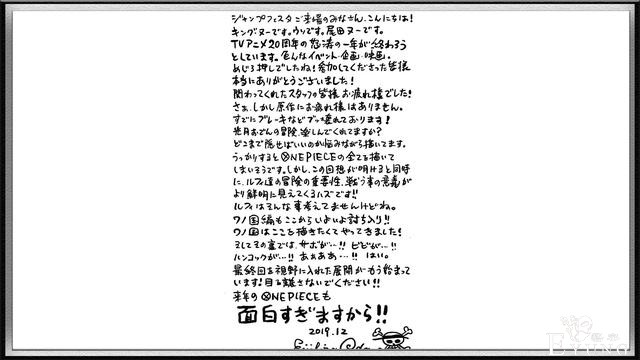 ジャンプフェスタご来場のみなさん、こんにちは!
キングヌーです。ウソです。尾田ヌーです。
TVアニメ20周年の怒涛の一年が終わろう
としています。色んなイベント・企画・映画。
めじろ押しでしたね!参加してくださった皆様
本当にありがとうございました!
関わってくれたスタッフの皆様お疲れ様でした!
さぁ、しかし原作にお疲れ様はありません。
すでにブレーキなどブッ壊れております!
光月おでんの冒険、楽しんでくれてますか?
どこまで隠せばいいのか悩みながら描いてます。
うっかりするとONE PIECEの全てを描いて
しまいそうです。しかし、この回想が明けると同時
に、ルフィ達の冒険の重要性、戦う事の意義が
より鮮明に見えてくるハズです!!
ルフィはそんな事考えてませんけどね。
ワノ国編もここからいよいよ討ち入り!!
ワノ国はここを描きたくてやってきました!
そしてその裏では、サボが…!! ビビが…!!
ハンコックが…!! あぁあぁ…!! はい。
最終回を視野に入れた展開がもう始まって
います!目を離さないでください!!
来年のONE PIECEも
面白すぎますから!!
2019.12
Eiichiro Oda